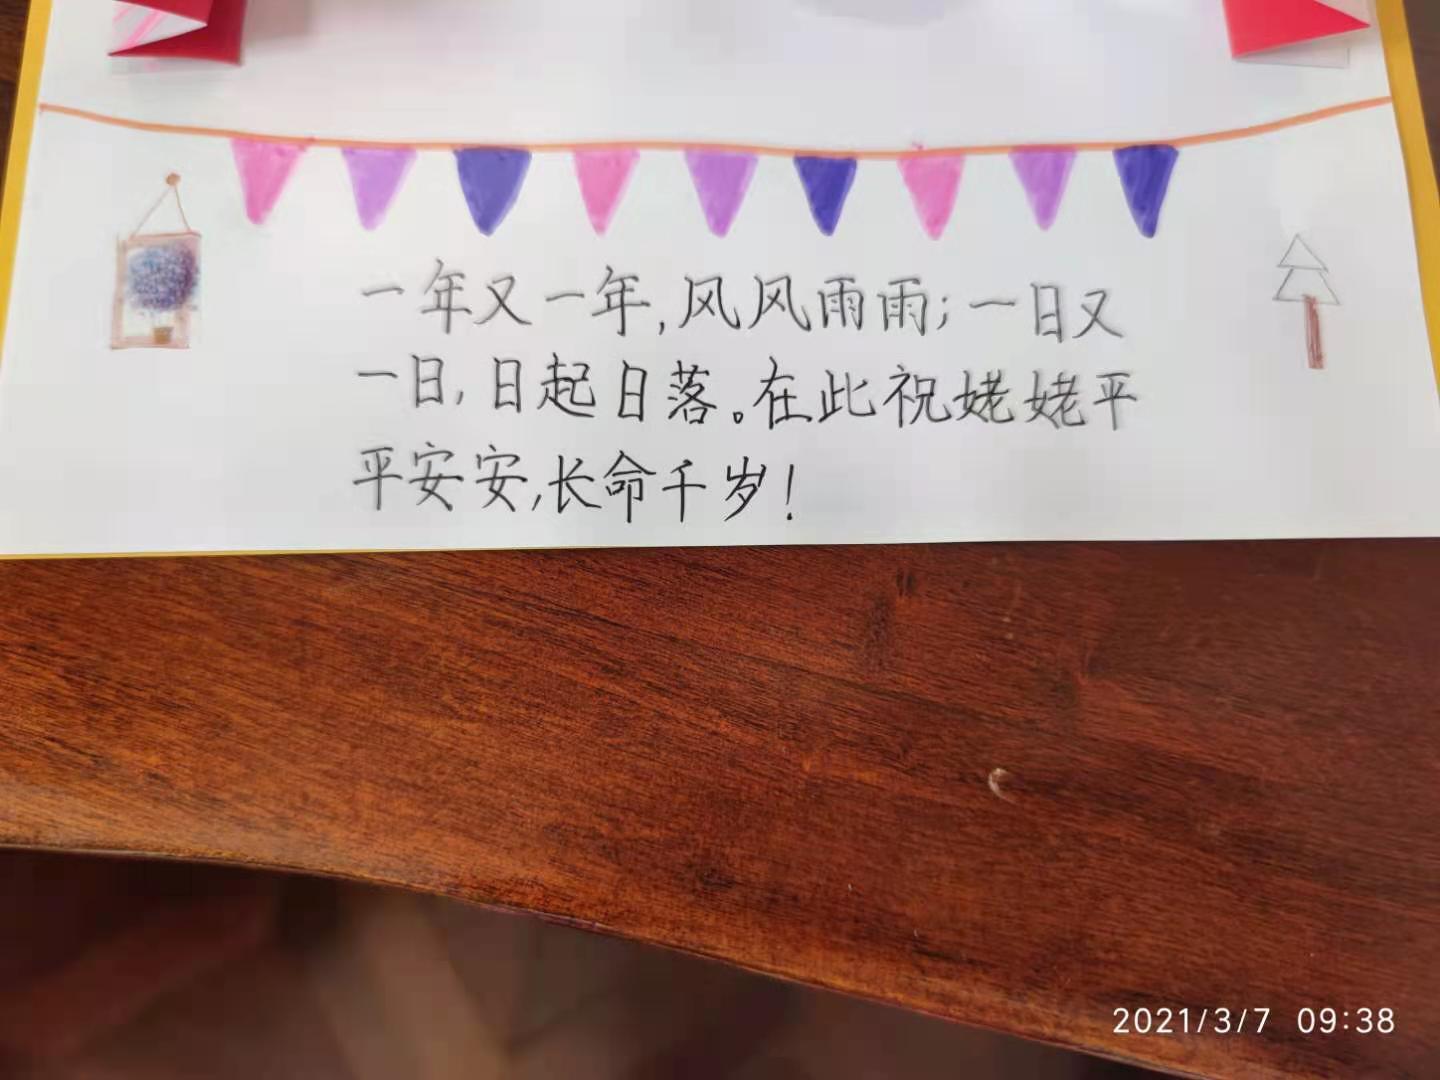 一年又一年,风风雨雨;一日又
一日,日起日落。在此祝姥姥平
平安安,长命千岁!
2021/3/7 09:38